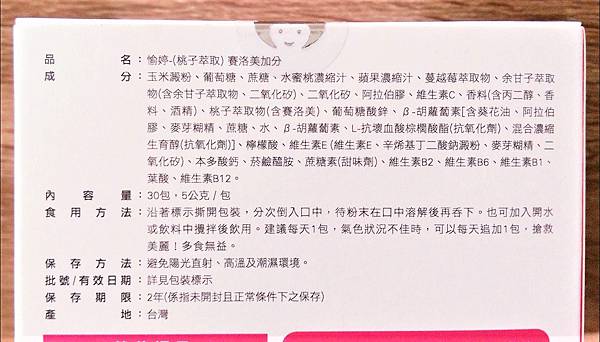 品名：愉婷-(桃子萃取) 賽洛美加分
成分：玉米澱粉、葡萄糖、蔗糖、水蜜桃濃縮汁、蘋果濃縮汁、蔓越莓萃取物、余甘子萃取
物(含余甘子萃取物、二氧化矽)、二氧化矽、阿拉伯膠、維生素C、香料(含丙二醇、香
料、酒精)、桃子萃取物(含賽洛美)、葡萄糖酸鋅、β-胡蘿蔔素[含葵花油、阿拉伯
膠、麥芽糊精、蔗糖、水、β-胡蘿蔔素、L-抗壞血酸棕櫚酸酯(抗氧化劑)、混合濃縮
生育醇(抗氧化劑)]、檸檬酸、維生素E(維生素E、辛烯基丁二酸鈉澱粉、麥芽糊精、二
氧化矽)、本多酸鈣、菸鹼醯胺、蔗糖素(甜味劑)、維生素B2、維生素B6、維生素B1、
葉酸、維生素B12。
內容量：30包，5公克 / 包
食用方法：沿著標示撕開包裝，分次倒入口中，待粉末在口中溶解後再吞下。也可加入開水
或飲料中攪拌後飲用。建議每天1包，氣色狀況不佳時，可以每天追加1包，搶救
美麗！多食無益。
保存方法：避免陽光直射、高溫及潮濕環境。
批號/有效日期：詳見包裝標示
保存期限：2年(係指未開封且正常條件下之保存)
產地：台灣